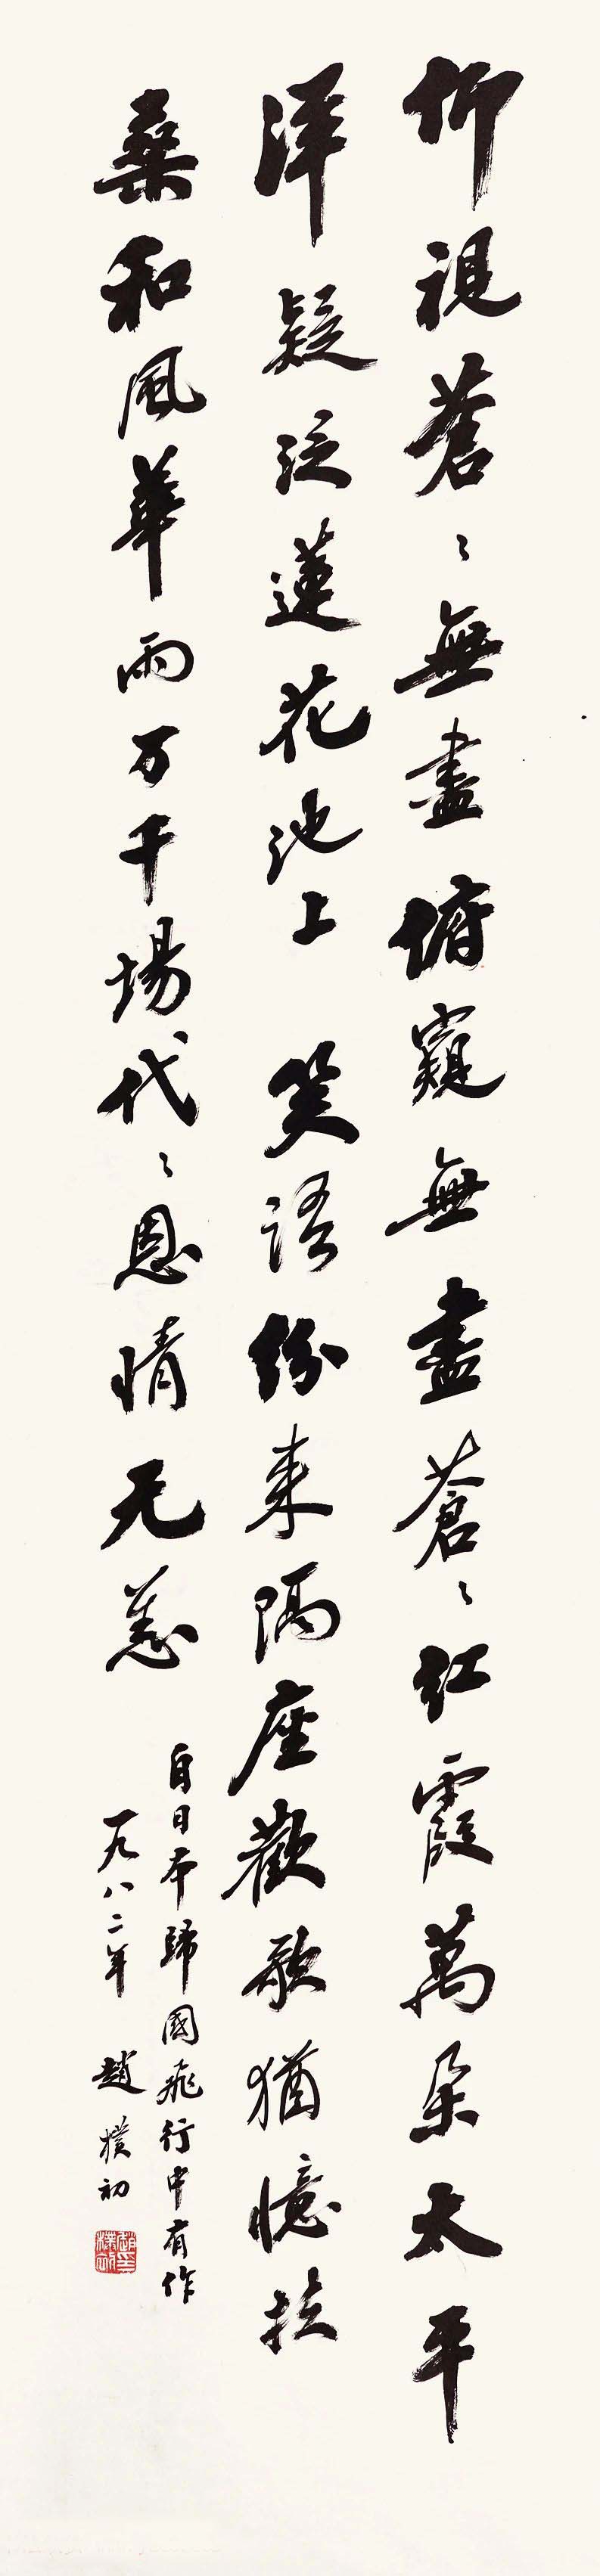 仰視蒼〻無盡俯窺無盡蒼〻紅霞萬朵太平
洋疑泛蓮花池上　笑語紛来隔座歡歌猶憶扶
桑和風華雨万千場代〻恩情无恙
自日本歸國飛行中有作
一九八二年　趙樸初
趙樸初